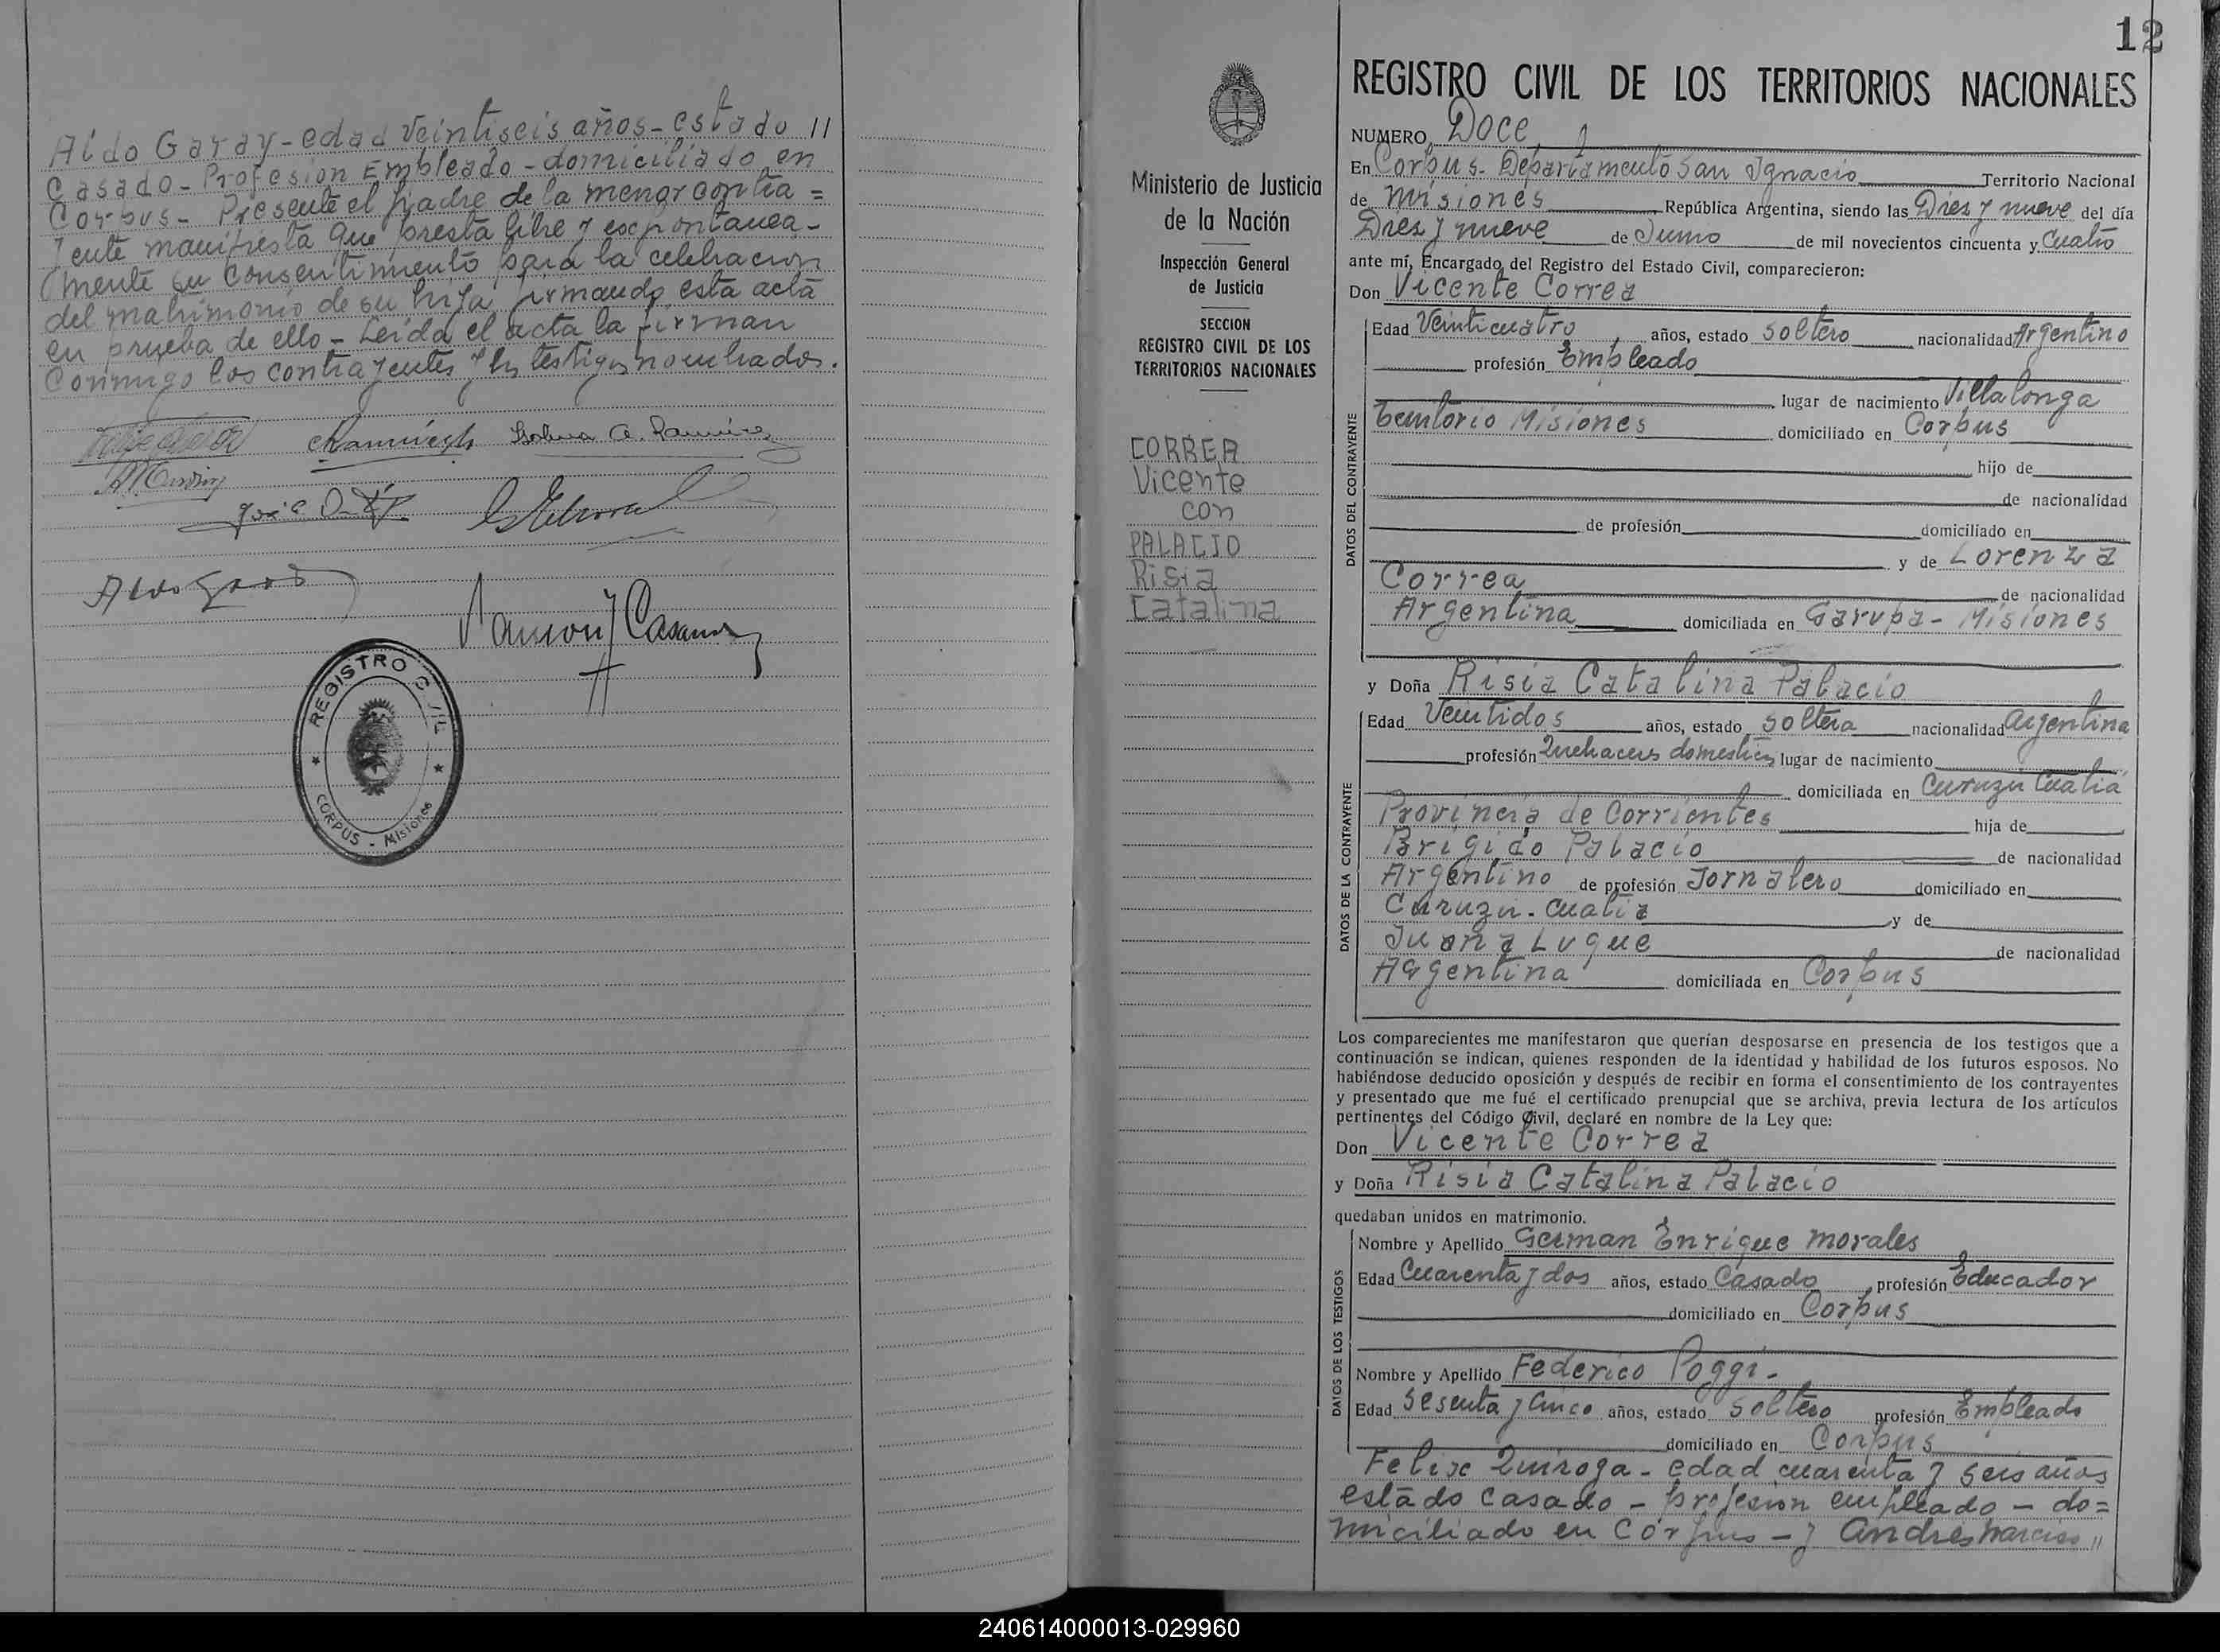 Aldo Garay - edad Veintiseis años - estado "
Casado - Profesion Empleado - domiciliado en
Corpus - Presente el padre de la menor contra =
yente manifiesta que presta libre y expontanea-
mente su consentimiento para la celebracion
del matrimonio de su hija, firmando esta acta
en prueba de ello - Leida el acta la firman
conmigo los contrayentes y los testigos nombrados.
REGISTRO CIVIL
CORPUS - Misiones
12
Ministerio de Justicia
de la Nación
Inspección General
de Justicia
SECCION
REGISTRO CIVIL DE LOS
TERRITORIOS NACIONALES
CORREA
Vicente
con
PALACIO
Risia
Catalina
REGISTRO CIVIL DE LOS TERRITORIOS NACIONALES
NUMERO Doce
En Corpus - Departamento San Ignacio Territorio Nacional
de Misiones República Argentina, siendo las Diez y nueve del día
Diez y nueve de Junio de mil novecientos cincuenta y Cuatro
ante mí, Encargado del Registro del Estado Civil, comparecieron:
Don Vicente Correa
DATOS DEL CONTRAYENTE
Edad Veinticuatro años, estado soltero nacionalidad Argentino
profesión Empleado
lugar de nacimiento Villalonga
Territorio Misiones domiciliado en Corpus
hijo de
de nacionalidad
de profesión domiciliado en
y de Lorenza
Correa de nacionalidad
Argentina domiciliada en Garupa - Misiones
y Doña Risia Catalina Palacio
DATOS DE LA CONTRAYENTE
Edad Veintidos años, estado soltera nacionalidad Argentina
profesión Quehaceres domesticos lugar de nacimiento
domiciliada en Curuzu Cuatia
Provincia de Corrientes hija de
Brigido Palacio de nacionalidad
Argentino de profesión Jornalero domiciliado en
Curuzu - Cuatia y de
Juana Luque de nacionalidad
Argentina domiciliada en Corpus
Los comparecientes me manifestaron que querían desposarse en presencia de los testigos que a
continuación se indican, quienes responden de la identidad y habilidad de los futuros esposos. No
habiéndose deducido oposición y después de recibir en forma el consentimiento de los contrayentes
y presentado que me fué el certificado prenupcial que se archiva, previa lectura de los artículos
pertinentes del Código Civil, declaré en nombre de la Ley que:
Don Vicente Correa
y Doña Risia Catalina Palacio
quedaban unidos en matrimonio.
DATOS DE LOS TESTIGOS
Nombre y Apellido German Enrique Morales
Edad Cuarenta y dos años, estado Casado profesión Educador
domiciliado en Corpus
Nombre y Apellido Federico Poggi -
Edad Sesenta y Cinco años, estado soltero profesión Empleado
domiciliado en Corpus
Felix Quiroga - edad cuarenta y seis años
estado casado - profesion empleado - do=
miciliado en Corpus - y Andres Narciso "
240614000013-029960